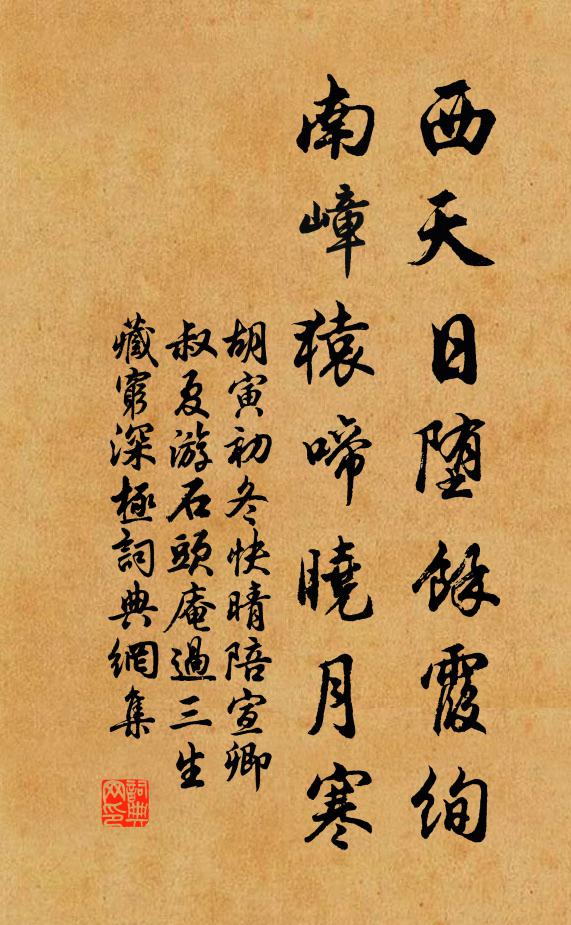 西天日堕餘霞絢
南嶂猿啼曉月寒
胡寅初冬快晴陪宣卿
叔夏游石頭庵過三生
藏窮深極詞典網集
詞典網印